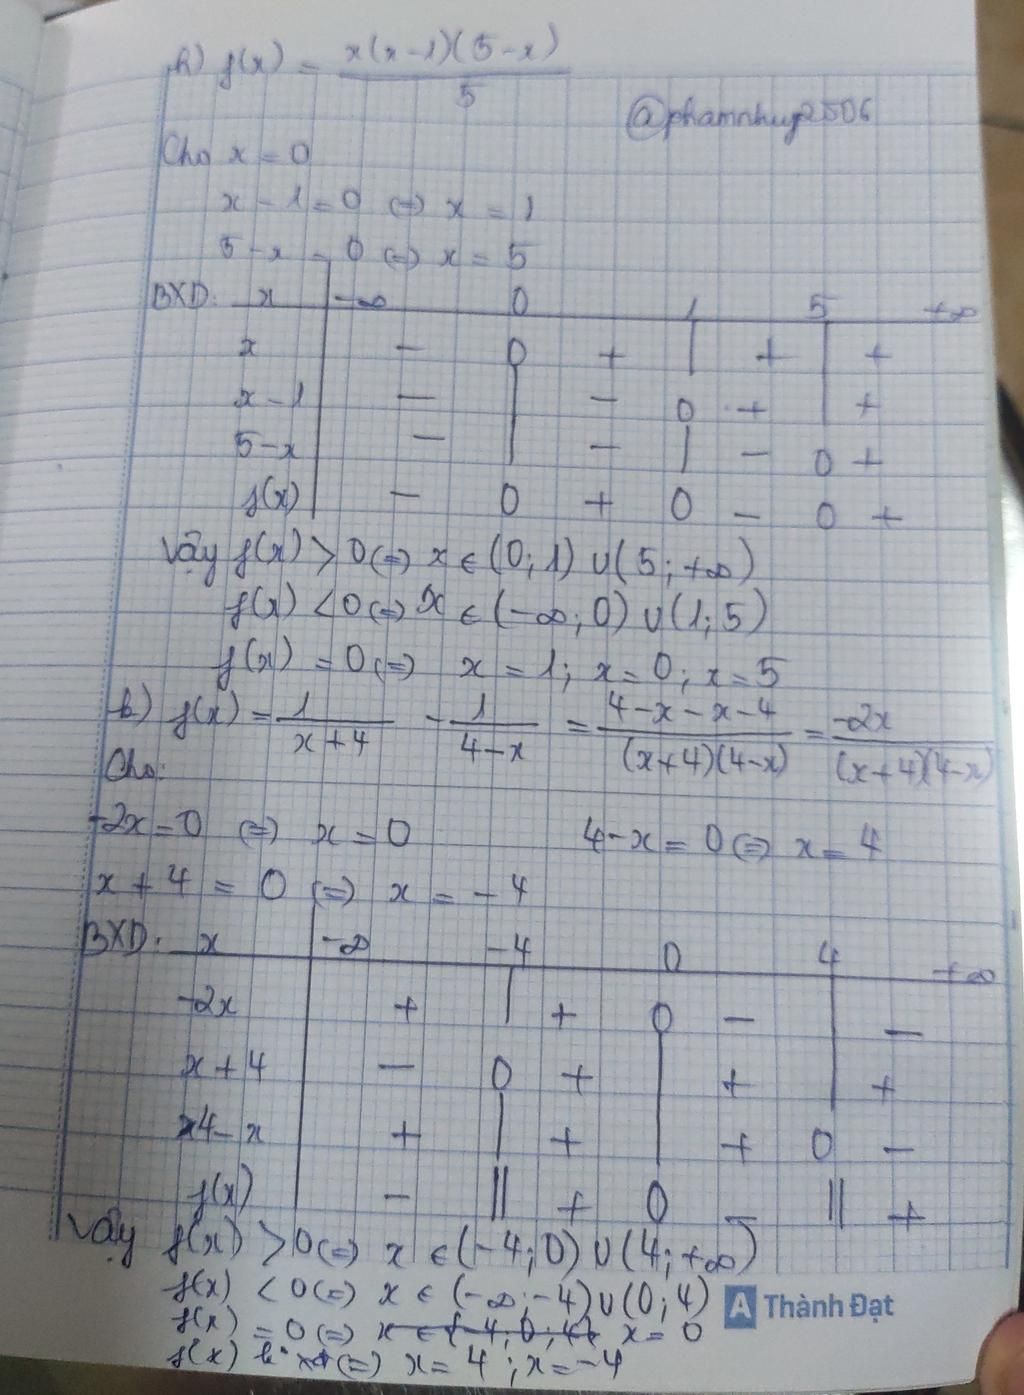 h) f(x) = x(x-1)(5-x) / 5
@phamnhuy2506
Cho x = 0
x - 1 = 0 (=) x = 1
5 - x = 0 (=) x = 5
BXD: x -∞ 0 1 5 +∞
x - 0 + | + | +
x-1 - | - 0 + | +
5-x - | - | - 0 +
f(x) - 0 + 0 - 0 +
Vậy f(x) > 0 (=) x ∈ (0; 1) ∪ (5; +∞)
f(x) < 0 (=) x ∈ (-∞; 0) ∪ (1; 5)
f(x) = 0 (=) x = 1; x = 0; x = 5
k) f(x) = 1/(x+4) - 1/(4-x) = (4-x-x-4)/((x+4)(4-x)) = -2x/((x+4)(4-x))
Cho:
-2x = 0 (=) x = 0 4-x = 0 (=) x = 4
x + 4 = 0 (=) x = -4
BXD: x -∞ -4 0 4 +∞
-2x + | + 0 - | -
x+4 - 0 + | + | +
4-x + | + | + 0 -
f(x) - || + 0 - || +
Vậy f(x) > 0 (=) x ∈ (-4; 0) ∪ (4; +∞)
f(x) < 0 (=) x ∈ (-∞; -4) ∪ (0; 4)
f(x) = 0 (=) x ∈ {-4; 0; 4} x = 0
f(x) (=) x = 4; x = -4
A Thành Đạt